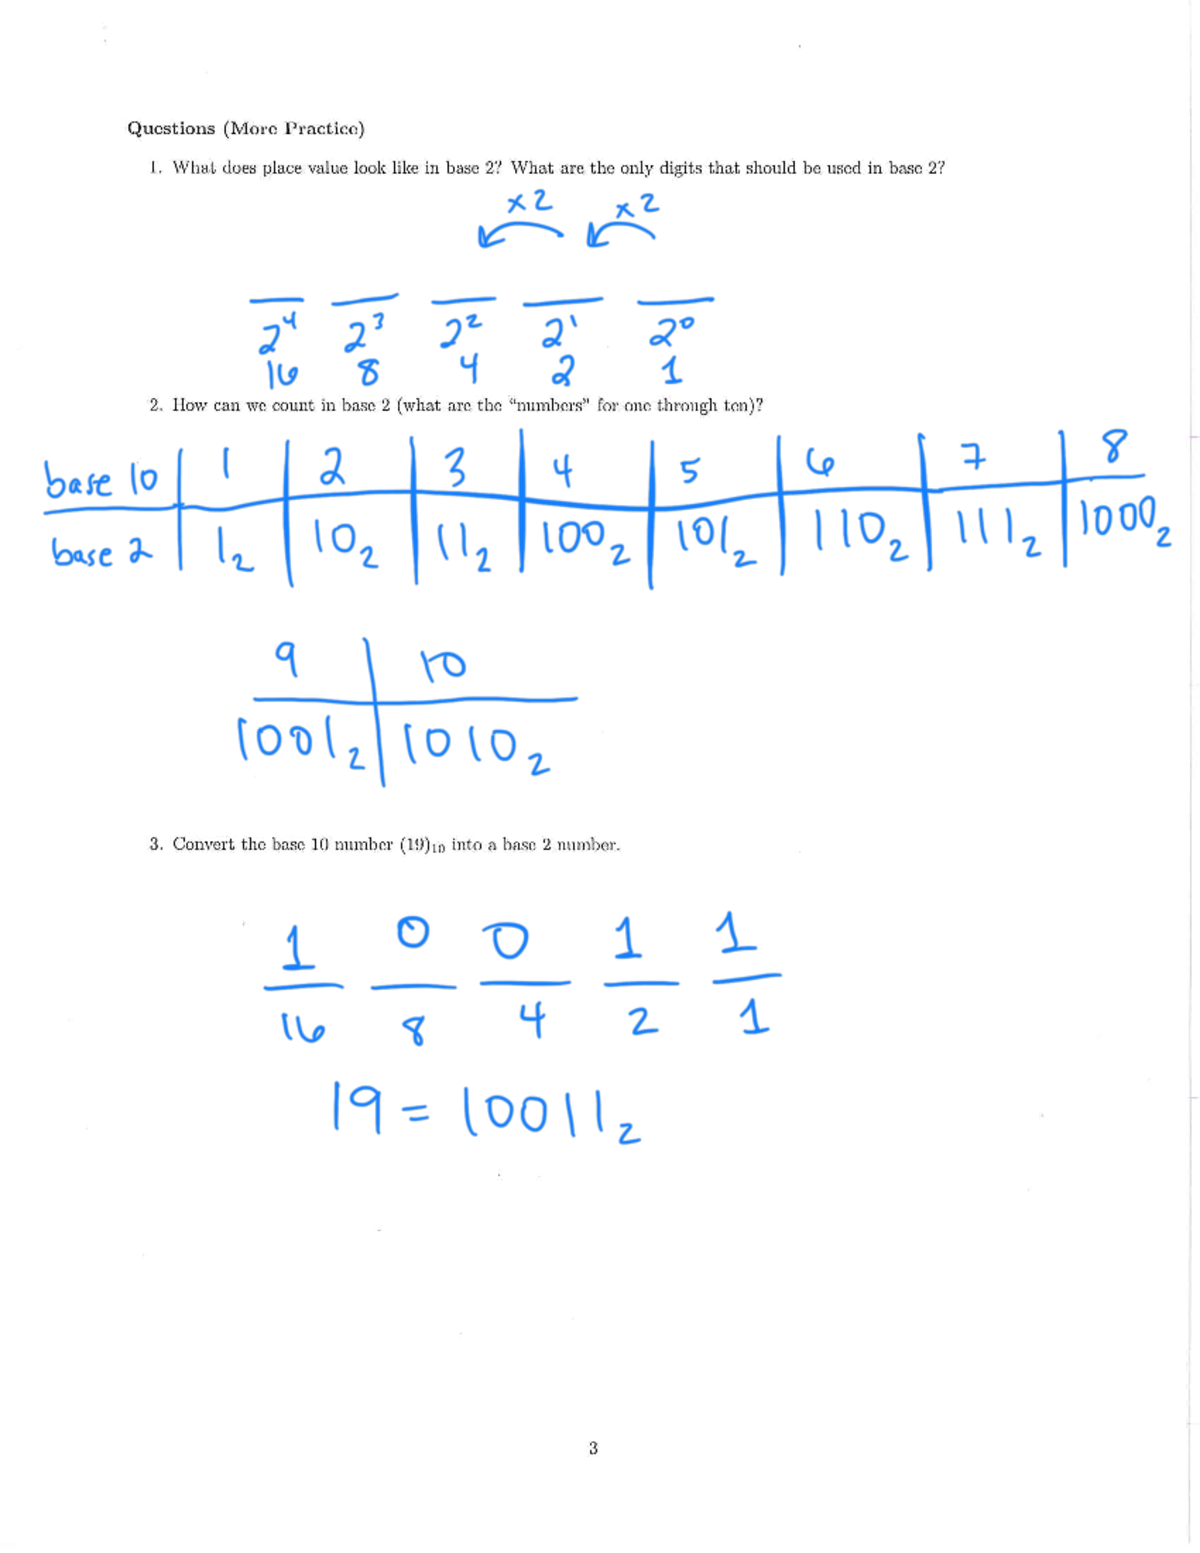 Questions (More Practice)
1. What does place value look like in base 2? What are the only digits that should be used in base 2?
x2 x2
2⁴ 2³ 2² 2¹ 2⁰
16 8 4 2 1
2. How can we count in base 2 (what are the "numbers" for one through ten)?
base 10 | 1 | 2 | 3 | 4 | 5 | 6 | 7 | 8
base 2 | 1₂ | 10₂ | 11₂ | 100₂ | 101₂ | 110₂ | 111₂ | 1000₂
9 | 10
1001₂ | 1010₂
3. Convert the base 10 number (19)₁₀ into a base 2 number.
1 0 0 1 1
16 8 4 2 1
19 = 10011₂
3